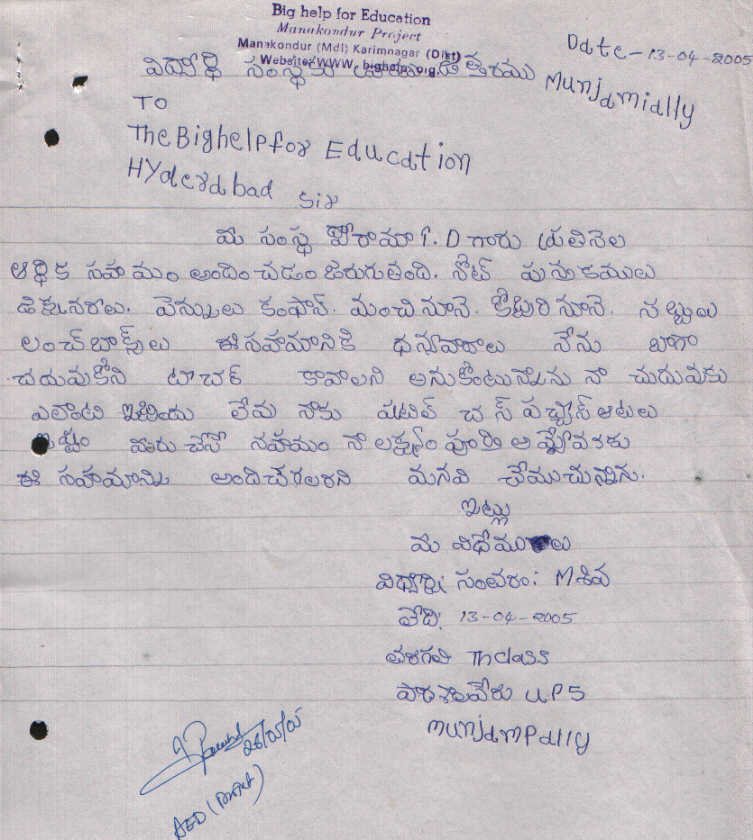 Big help for Education
Manakondur Project
Manakondur (Mdl) Karimnagar (Dist)
Website: WWW. bighelp.org.
Date-13-04-2005
విద్యార్థి సంస్థకు ఉత్తరము
Munjamially
TO
The Bighelp for Education
HYderabad sir
మీ సంస్థ శ్రీరామా P.D గారు ప్రతినెల
ఆర్థిక సహాయం అందించడం జరుగుతంది. నోట్ పుస్తకములు
డిక్షనరలు. పెన్నులు కంపాస్. మంచినూనె. కొబ్బరినూనె. సబ్బులు
లంచ్ బాక్స్ లు ఈ సహాయానికి ధన్యవాదాలు నేను బాగా
చదువుకొని టీచర్ కావాలని అనుకుంటున్నాను నా చదువుకు
ఎలాంటి లేవు నాకు ఆటలు
ఇష్టం మీరు చేసే సహాయం నా లక్ష్యం పూర్తి అయ్యేవరకు
ఈ సహాయాన్ని అందిచగలరని మనవి చేయుచున్నాను.
ఇట్లు
మీ విధేయులు
విద్యార్థి సంతకం: M శివ
తేది: 13-04-2005
తరగతి 7th class
పాఠశాలపేరు UPS
munjampally
26/5/05